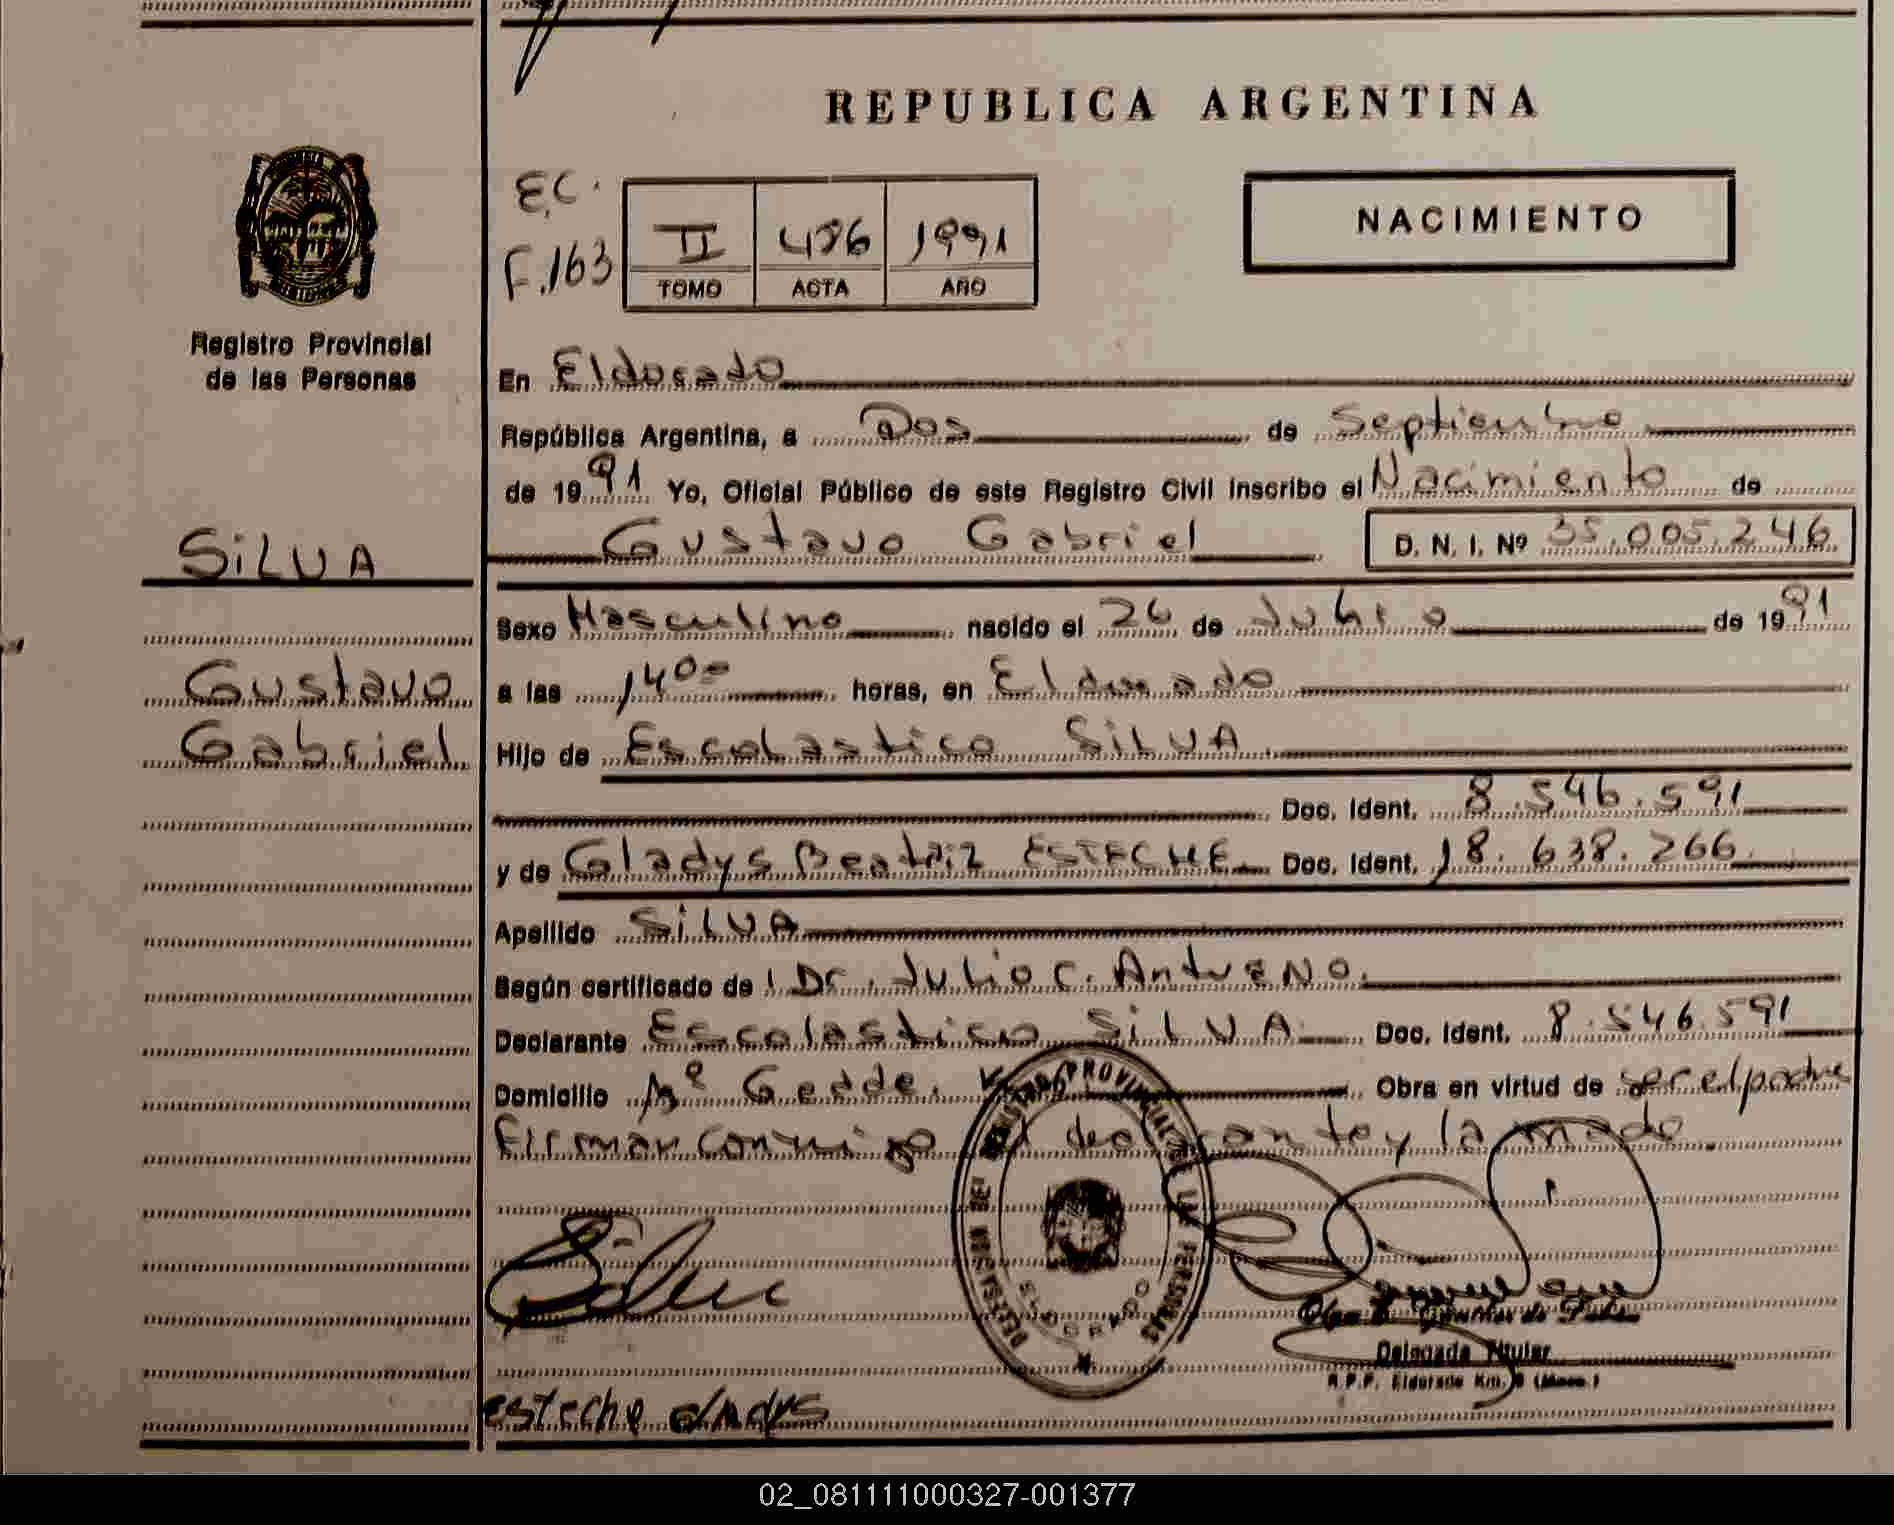 REPUBLICA ARGENTINA
E.C.
F.163
II 486 1991
TOMO ACTA AÑO
NACIMIENTO
Registro Provincial
de las Personas
En Eldorado
República Argentina, a Dos de Septiembre
de 1991 Yo, Oficial Público de este Registro Civil inscribo el Nacimiento de
SILVA
Gustavo Gabriel D. N. I. Nº 35.005.246
Sexo Masculino nacido el 26 de Julio de 1991
Gustavo
a las 14 00 horas, en Eldorado
Gabriel
Hijo de Escolastico SILVA
Doc. Ident. 8.546.591
y de Gladys Beatriz ESTECHE Doc. Ident. 18.638.266
Apellido SILVA
Según certificado de Dr. Julio C.
Declarante Escolastico SILVA Doc. Ident. 8.546.591
Domicilio Obra en virtud de ser el padre
Firman conmigo el declarante y la madre.
REGISTRO PROVINCIAL DE LAS PERSONAS
ELDORADO
Delegada Titular
R.P.P. Eldorado Km. 9 (Mnes.)
esteche gladys
02_081111000327-001377